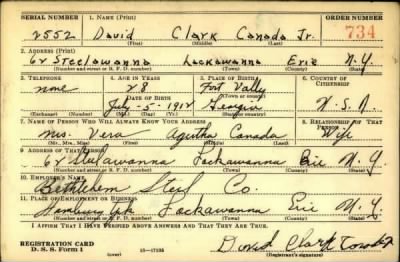 SERIAL NUMBER 1. NAME (Print) ORDER NUMBER
2552 David Clark Canada Jr. 734
(First) (Middle) (Last)
2. ADDRESS (Print)
62 Steelawanna Lackawanna Erie N.Y.
(Number and street or R. F. D. number) (Town) (County) (State)
3. TELEPHONE 4. AGE IN YEARS 5. PLACE OF BIRTH 6. COUNTRY OF CITIZENSHIP
none 28 Fort Vally
DATE OF BIRTH (Town or county)
July-5-1912 Georgia U.S.A.
(Exchange) (Number) (Mo.) (Day) (Yr.) (State or country)
7. NAME OF PERSON WHO WILL ALWAYS KNOW YOUR ADDRESS 8. RELATIONSHIP OF THAT PERSON
Mrs. Vera Agutha Canada Wife
(Mr., Mrs., Miss) (First) (Middle) (Last)
9. ADDRESS OF THAT PERSON
62 Steelawanna Lackawanna Erie N.Y.
(Number and street or R. F. D. number) (Town) (County) (State)
10. EMPLOYER'S NAME
Bethlehem Steel Co.
11. PLACE OF EMPLOYMENT OR BUSINESS
Hamburg tpk Lackawanna Erie N.Y.
(Number and street or R. F. D. number) (Town) (County) (State)
I AFFIRM THAT I HAVE VERIFIED ABOVE ANSWERS AND THAT THEY ARE TRUE.
REGISTRATION CARD
D. S. S. Form 1 (over) 16—17105 David Clark Canada Jr
(Registrant's signature)